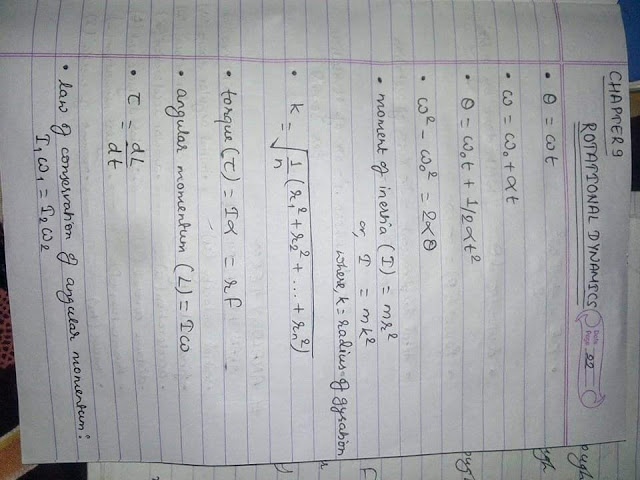 Date
Page 22
CHAPTER 9
ROTATIONAL DYNAMICS
• θ = ωt
• ω = ω₀ + αt
• θ = ω₀t + 1/2 αt²
• ω² - ω₀² = 2αθ
• moment of inertia (I) = mr²
or, I = mk²
where, k = radius of gyration
• k = √(1/n (r₁² + r₂² + ... + rn²))
• torque (τ) = Iα = rF
• angular momentum (L) = Iω
• τ = dL/dt
• law of conservation of angular momentum:
I₁ω₁ = I₂ω₂